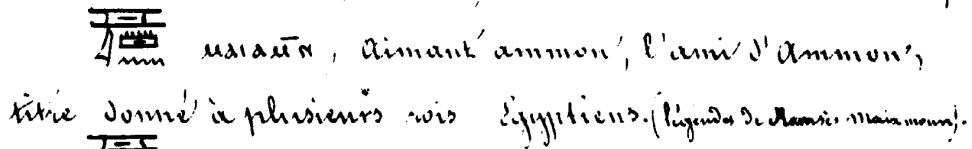 ⲙⲁⲓⲁⲙⲛ, aimant ammon, l'ami d'Ammon,
titre donné à plusieurs rois Égyptiens. (légendes de Ramsès-maïamoun).